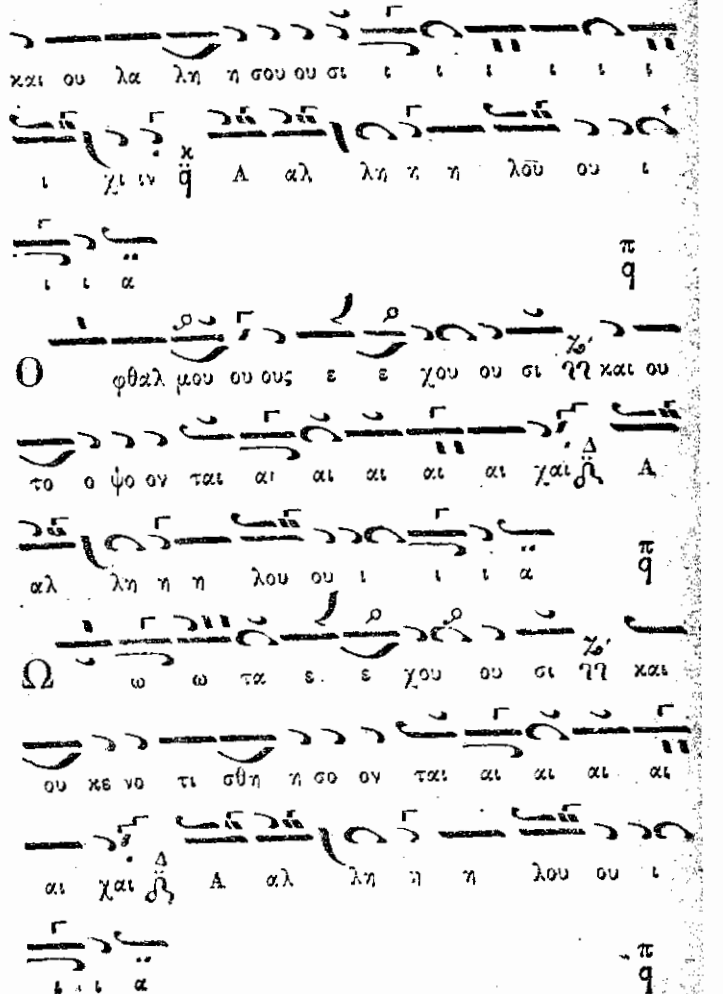 και ου λα λη η σου ου σι ι ι ι ι ι ι
ι χι ιν κ q Α αλ λη η η λου ου ι
ι ι α π q
Ο φθαλ μου ου ους ε ε χου ου σι ζ' και ου
το ο ψο ον ται αι αι αι αι αι χαι Δ Α
αλ λη η η λου ου ι ι ι α π q
Ω ω ω τα ε ε χου ου σι ζ' και
ου κε νο τι σθη η σο ον ται αι αι αι αι
αι χαι Δ Α αλ λη η η λου ου ι
ι ι α π q